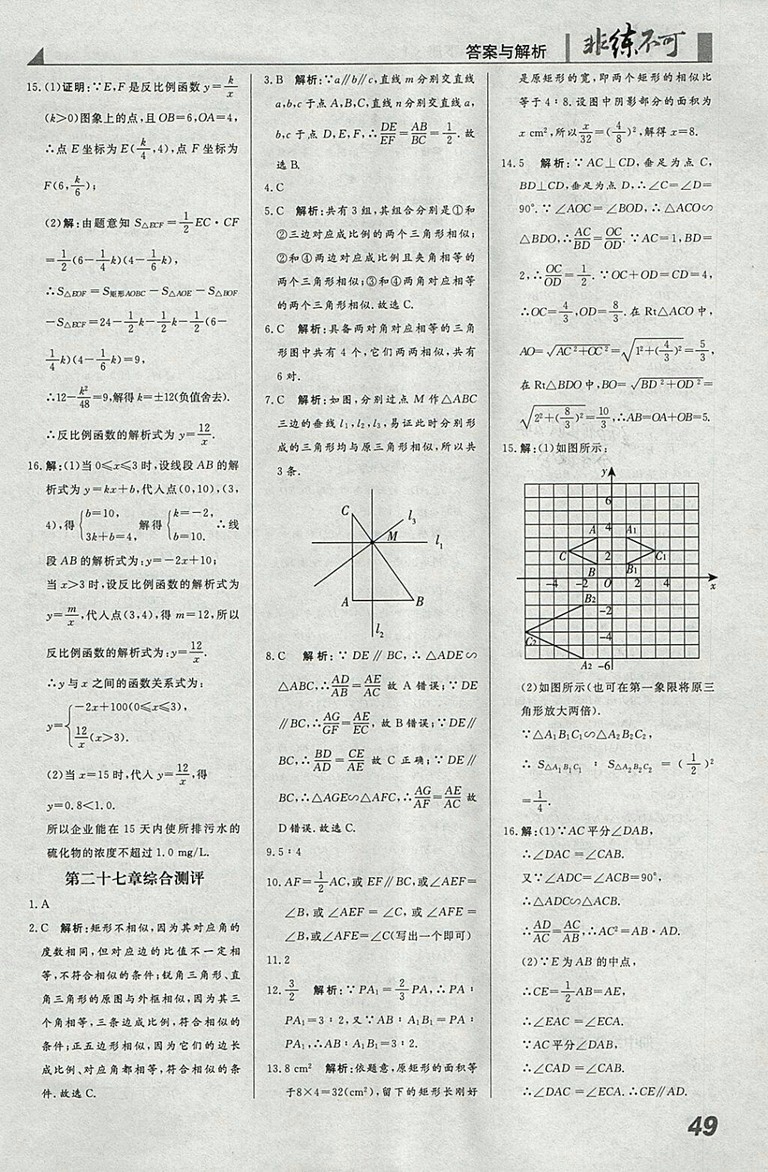 答案与解析 非练不可
15.(1)证明:∵E,F是反比例函数y=k/x
(k>0)图象上的点,且OB=6,OA=4,
∴点E坐标为E(k/4,4),点F坐标为
F(6,k/6);
(2)解:由题意知S△ECF=1/2EC·CF
=1/2(6-1/4k)(4-1/6k),
∴S△EOF=S矩形AOBC-S△AOE-S△BOF
-S△ECF=24-1/2k-1/2k-1/2(6-
1/4k)(4-1/6k)=9,
∴12-k²/48=9,解得k=±12(负值舍去).
∴反比例函数的解析式为y=12/x.
16.解:(1)当0≤x≤3时,设线段AB的解
析式为y=kx+b,代人点(0,10),(3,
4),得{b=10, 3k+b=4, 解得{k=-2, b=10. ∴线
段AB的解析式为:y=-2x+10;
当x>3时,设反比例函数的解析式为
y=m/x,代人点(3,4),得m=12,所以
反比例函数的解析式为:y=12/x.
∴y与x之间的函数关系式为:
y={-2x+100(0≤x≤3), 12/x(x>3).
(2)当x=15时,代人y=12/x,得
y=0.8<1.0.
所以企业能在15天内使所排污水的
硫化物的浓度不超过1.0 mg/L.
第二十七章综合测评
1.A
2.C 解析:矩形不相似,因为其对应角的
度数相同,但对应边的比值不一定相
等,不符合相似的条件;锐角三角形、直
角三角形的原图与外框相似,因为其三
个角相等,三条边成比例,符合相似的
条件;正五边形相似,因为它们的边长
成比例、对应角都相等,符合相似的条
件.故选C.
3.B 解析:∵a∥b∥c,直线m分别交直线
a,b,c于点A,B,C,直线n分别交直线a,
b,c于点D,E,F,∴DE/EF=AB/BC=1/2.故
选B.
4.C
5.C 解析:共有3组,其组合分别是①和
②三边对应成比例的两个三角形相似;
②和④两边对应成比例且夹角相等的
两个三角形相似;③和④两角对应相等
的两个三角形相似.故选C.
6.C 解析:具备两对角对应相等的三角
形图中共有4个,它们两两相似,共有
6对.
7.C 解析:如图,分别过点M作△ABC
三边的垂线l₁,l₂,l₃,易证此时分别形
成的三角形均与原三角形相似,所以共
3条.
C l₃
M l₁
A B
l₂
8.C 解析:∵DE∥BC,∴△ADE∽
△ABC,∴AD/AB=AE/AC 故A错误;∵DE
∥BC,∴AG/GF=AE/EC,故B错误;∵DE∥
BC,∴BD/AD=CE/AE 故C正确;∵DE∥
BC,∴△AGE∽△AFC,∴AG/AF=AE/AC 故
D错误.故选C.
9.5∶4
10.AF=1/2AC,或EF∥BC,或∠AEF=
∠B,或∠AEF=∠C,或∠AFE=
∠B,或∠AFE=∠C(写出一个即可)
11.2
12.3/2 解析:∵PA₁=2/3PA,∴PA∶
PA₁=3∶2,又∵AB∶A₁B₁=PA∶
PA₁,∴AB∶A₁B₁=3∶2.
13.8 cm² 解析:依题意,原矩形的面积等
于8×4=32(cm²),留下的矩形长刚好
是原矩形的宽,即两个矩形的相似比
等于4∶8.设图中阴影部分的面积为
x cm²,所以x/32=(4/8)²,解得x=8.
14.5 解析:∵AC⊥CD,垂足为点C,
BD⊥CD,垂足为点D,∴∠C=∠D=
90°.∵∠AOC=∠BOD,∴△ACO∽
△BDO,∴AC/BD=OC/OD.∵AC=1,BD=
2,∴OC/OD=1/2.∵OC+OD=CD=4,
∴OC=4/3,OD=8/3.在Rt△ACO中,
AO=√(AC²+CC²)=√(1²+(4/3)²)=5/3,
在Rt△BDO中,BO=√(BD²+OD²)=
√(2²+(8/3)²)=10/3,∴AB=OA+OB=5.
15.解:(1)如图所示:
y
6
4
A A₁
C 2 C₁
B B₁
-4 -2 O 2 4 x
B₂ -2
C₂ -4
A₂ -6
(2)如图所示(也可在第一象限将原三
角形放大两倍).
∵△A₁B₁C₁∽△A₂B₂C₂,
∴S△A₁B₁C₁∶S△A₂B₂C₂=(1/2)²
=1/4.
16.解:(1)∵AC平分∠DAB,
∴∠DAC=∠CAB.
又∵∠ADC=∠ACB=90°,
∴△ADC∽△ACB.
∴AD/AC=AC/AB,∴AC²=AB·AD.
(2)∵E为AB的中点,
∴CE=1/2AB=AE,
∴∠EAC=∠ECA.
∵AC平分∠DAB,
∴∠CAD=∠CAB.
∴∠DAC=∠ECA.∴CE∥AD.
49